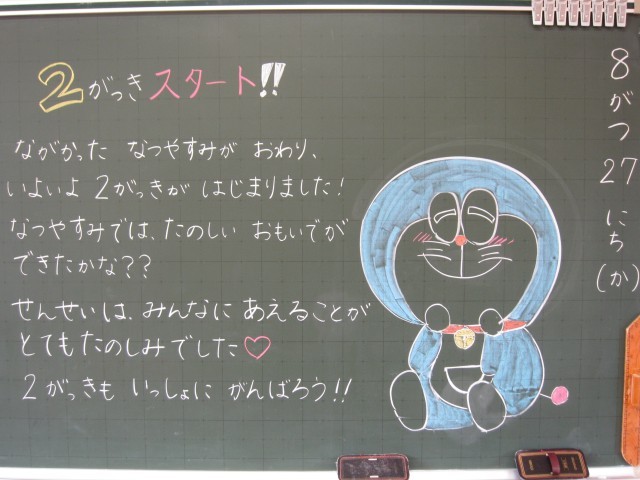 2がっきスタート!!
ながかった なつやすみが おわり、
いよいよ 2がっきが はじまりました!
なつやすみでは、たのしい おもいでが
できたかな??
せんせいは、みんなに あえることが
とてもたのしみでした♡
2がっきも いっしょに がんばろう!!
8がつ27にち(か)